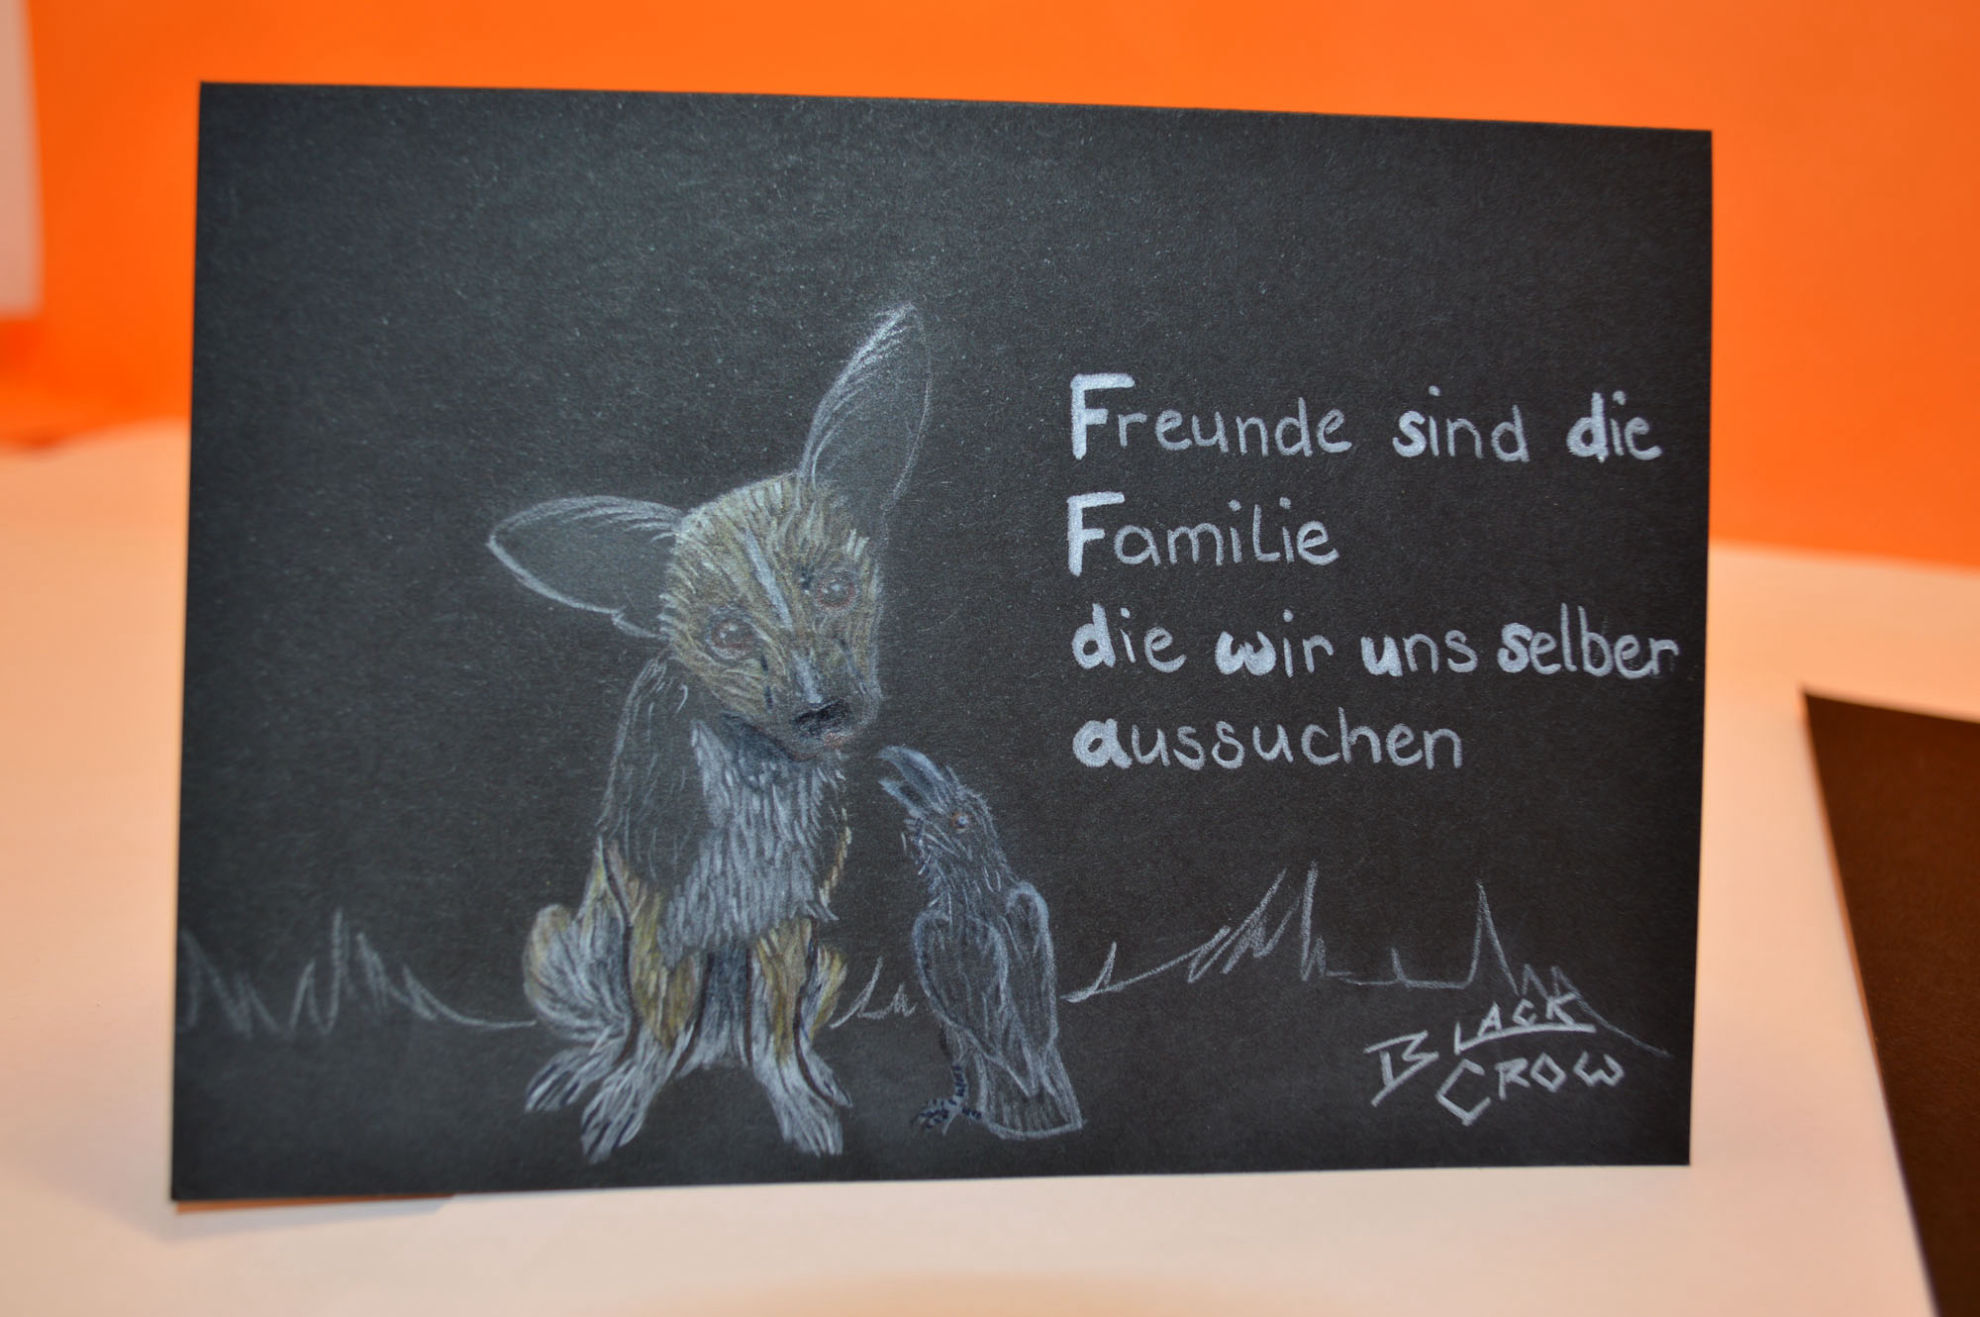 Freunde sind die
Familie
die wir uns selber
aussuchen
BLACK
CROW